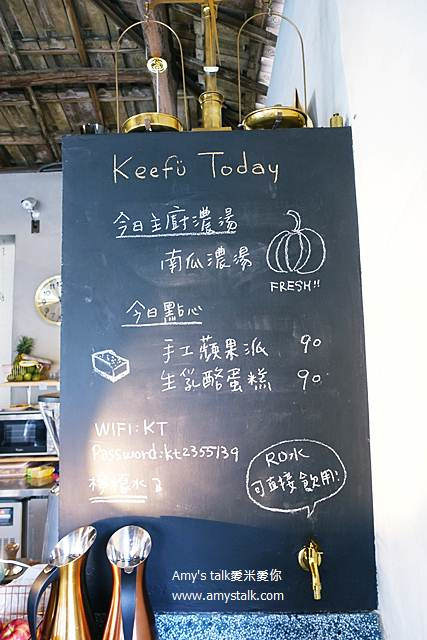 Keefü Today
今日主廚濃湯
南瓜濃湯
FRESH!!
今日點心
手工蘋果派 90
生乳酪蛋糕 90
WIFI:KT
Password:kt2355139
檸檬水
RO水
可直接飲用!
Amy's talk愛米愛你
www.amystalk.com